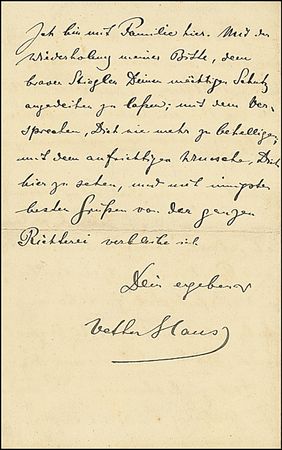 Ich bin mit Familie hier. Mit der
Wiederholung meiner Bitte, dem
braven Stiegler Deinen mächtigen Schutz
angedeihen zu lassen; mit dem Ver-
sprechen, Dich nie mehr zu behelligen,
mit dem aufrichtigen Wunsche, Dich
hier zu sehen, und mit innigsten
besten Grüßen von der ganzen
Richterei verbleibe ich
Dein ergebener
Vetter Hans